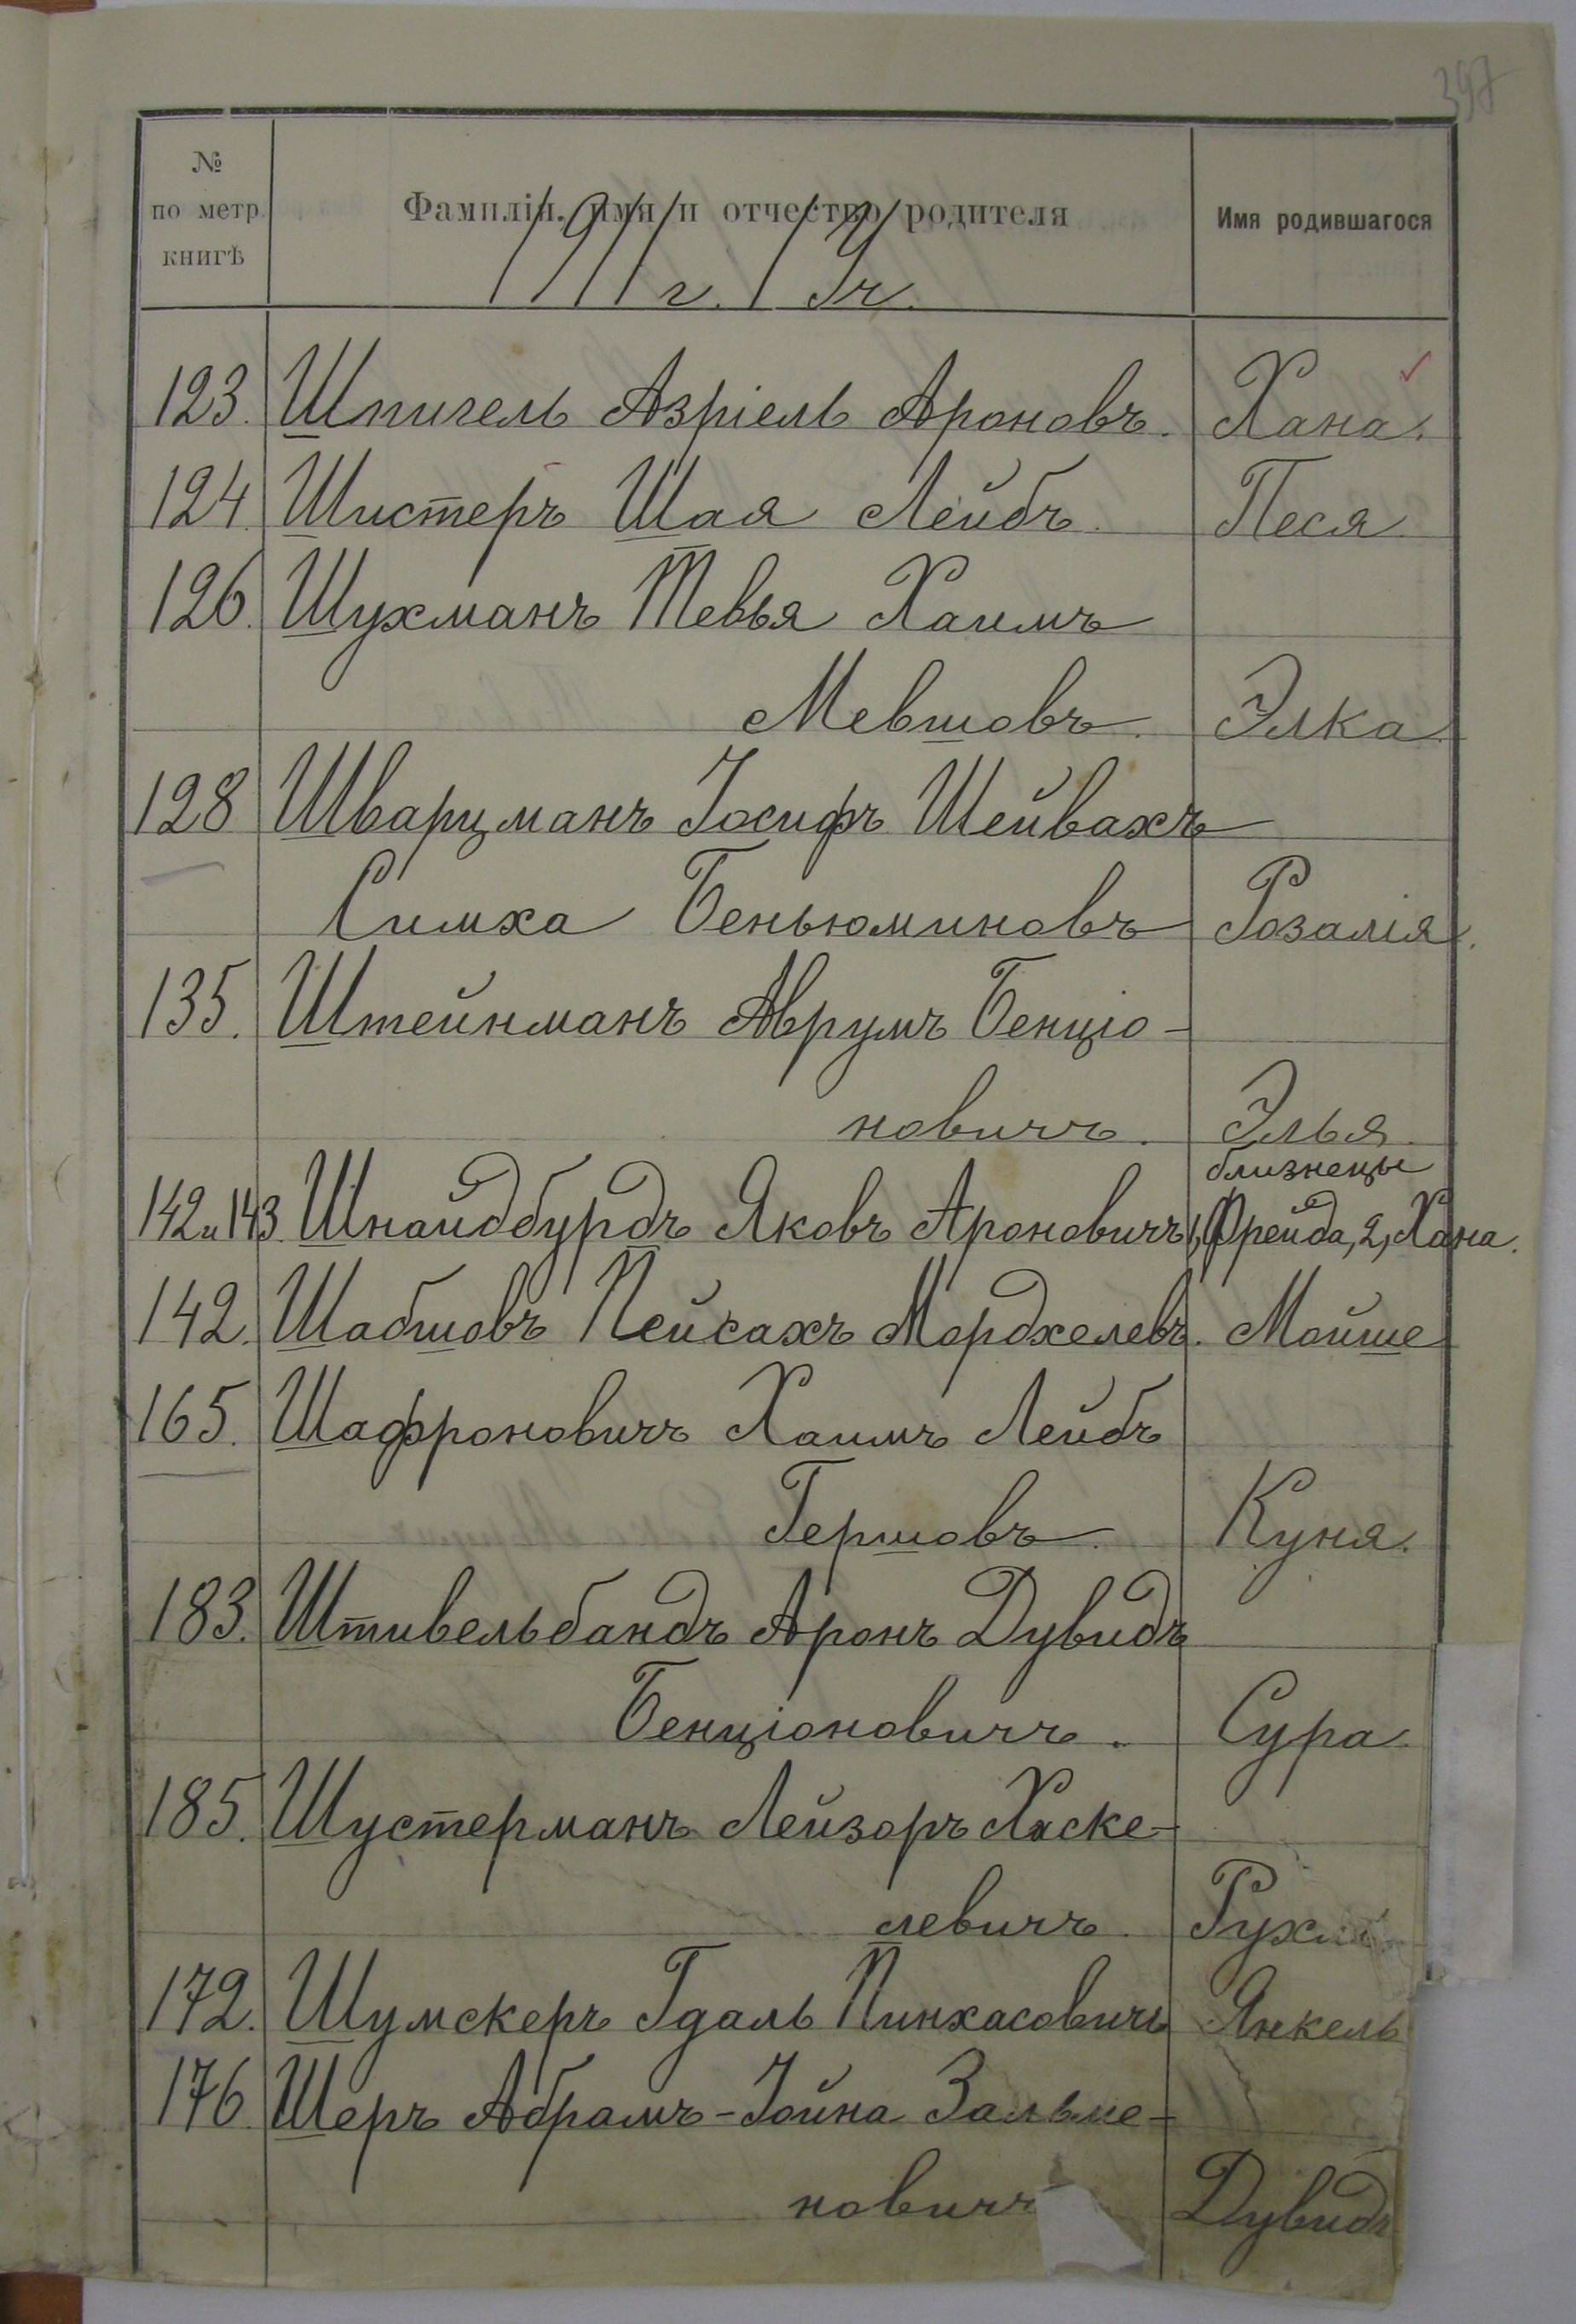 397
№
по метр.
книгѣ
Фамилія, имя и отчество родителя
Имя родившагося
1911 г. 1 Уч.
123. Шпигель Азріель Ароновъ. Хана.
124. Шистеръ Шая Лейбъ. Песя
126. Шухманъ Тевья Хаимъ
Мевшовъ. Элка
128 Шварцманъ Іосифъ Шейвахъ
Симха Беньюминовъ Розалія.
135. Штейнманъ Аврумъ Бенціо-
новичъ. Элья
близнецы
142 и 143. Шнайдбурдъ Яковъ Ароновичъ 1, Фрейда, 2, Хана.
142. Шабшовъ Пейсахъ Мордхелевъ. Мойше
165. Шафроновичъ Хаимъ Лейбъ
Гершовъ. Куня.
183. Штивельбандъ Аронъ Дувидъ
Бенціоновичъ. Сура
185. Шустерманъ Лейзоръ Хаске-
левичъ.
172. Шумскеръ Гдаль Пинхасовичъ Янкель
176 Шеръ Абрамъ-Іойна Зальме-
новичъ Дувидъ